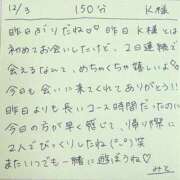 12/3 150分 K様
昨日ぶりだね♡♡ 昨日 K様とは
初めてお会いしたけど、2日連続で
会えるなんて、めちゃくちゃ嬉しいよ
今日も会いに来てくれてありがとう!!
昨日よりも長いコース時間だったのに
今日の方が早く感じて、帰り際に
2人でびっくりしたね(°°)笑
またいつでも一緒に遊ぼうね♡
みと